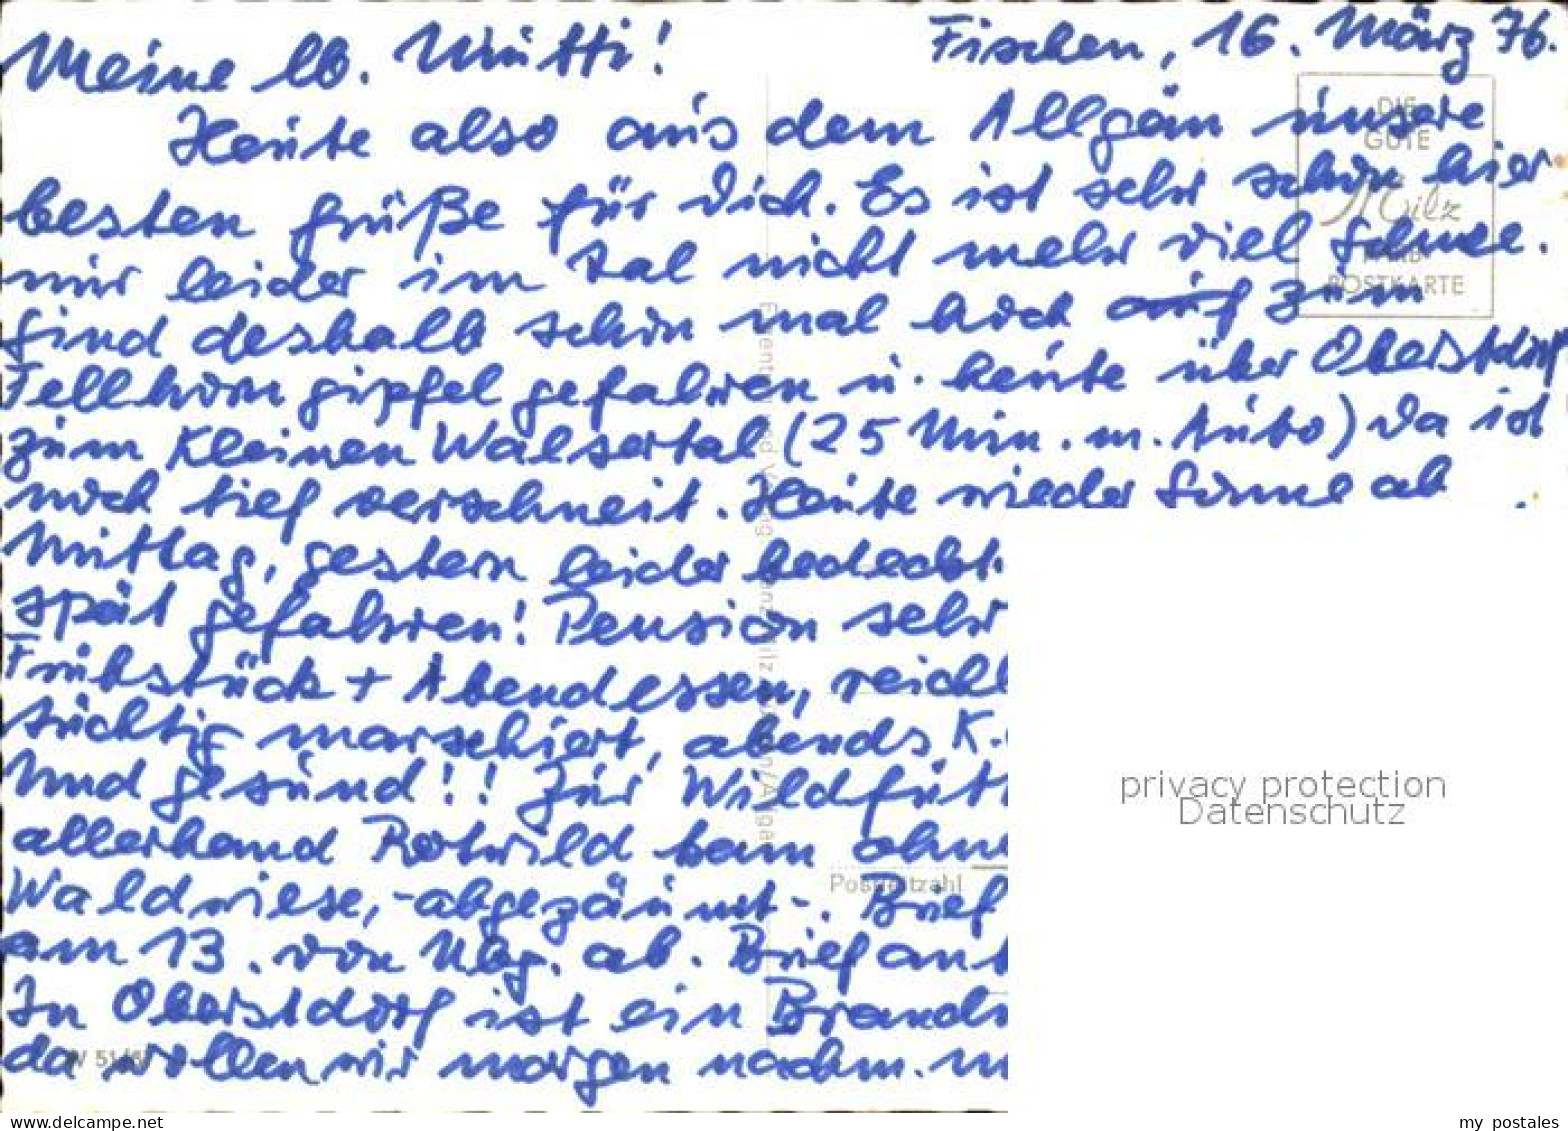 Meine lb. Mutti!
Fischen, 16. März 76.
Heute also aus dem Allgäu unsere
besten Grüße für Dich. Es ist sehr schön hier
nur leider im Tal nicht mehr viel Schnee.
Sind deshalb schon mal hoch auf zum
Fellhorngipfel gefahren u. heute über Oberstdorf
zum Kleinen Walsertal (25 Min. m. Auto) Da ist
noch tief verschneit. Heute wieder Sonne ab
Mittag, gestern leider bedeckt.
spät gefahren! Pension sehr
Frühstück + Abendessen, reichl
tüchtig marschiert, abends K.
Und gesund!! Zur Wildfütt
allerhand Rotwild kam ohne
Waldwiese, -abgezäunt-. Brief
am 13. von Nbg. ab. Brief ant
In Oberstdorf ist ein Brand
da wollen wir morgen nachm. m
DIE
GUTE
Milz
FARB-
POSTKARTE
Postleitzahl
W 51/8
privacy protection
Datenschutz
www.delcampe.net
my_postales